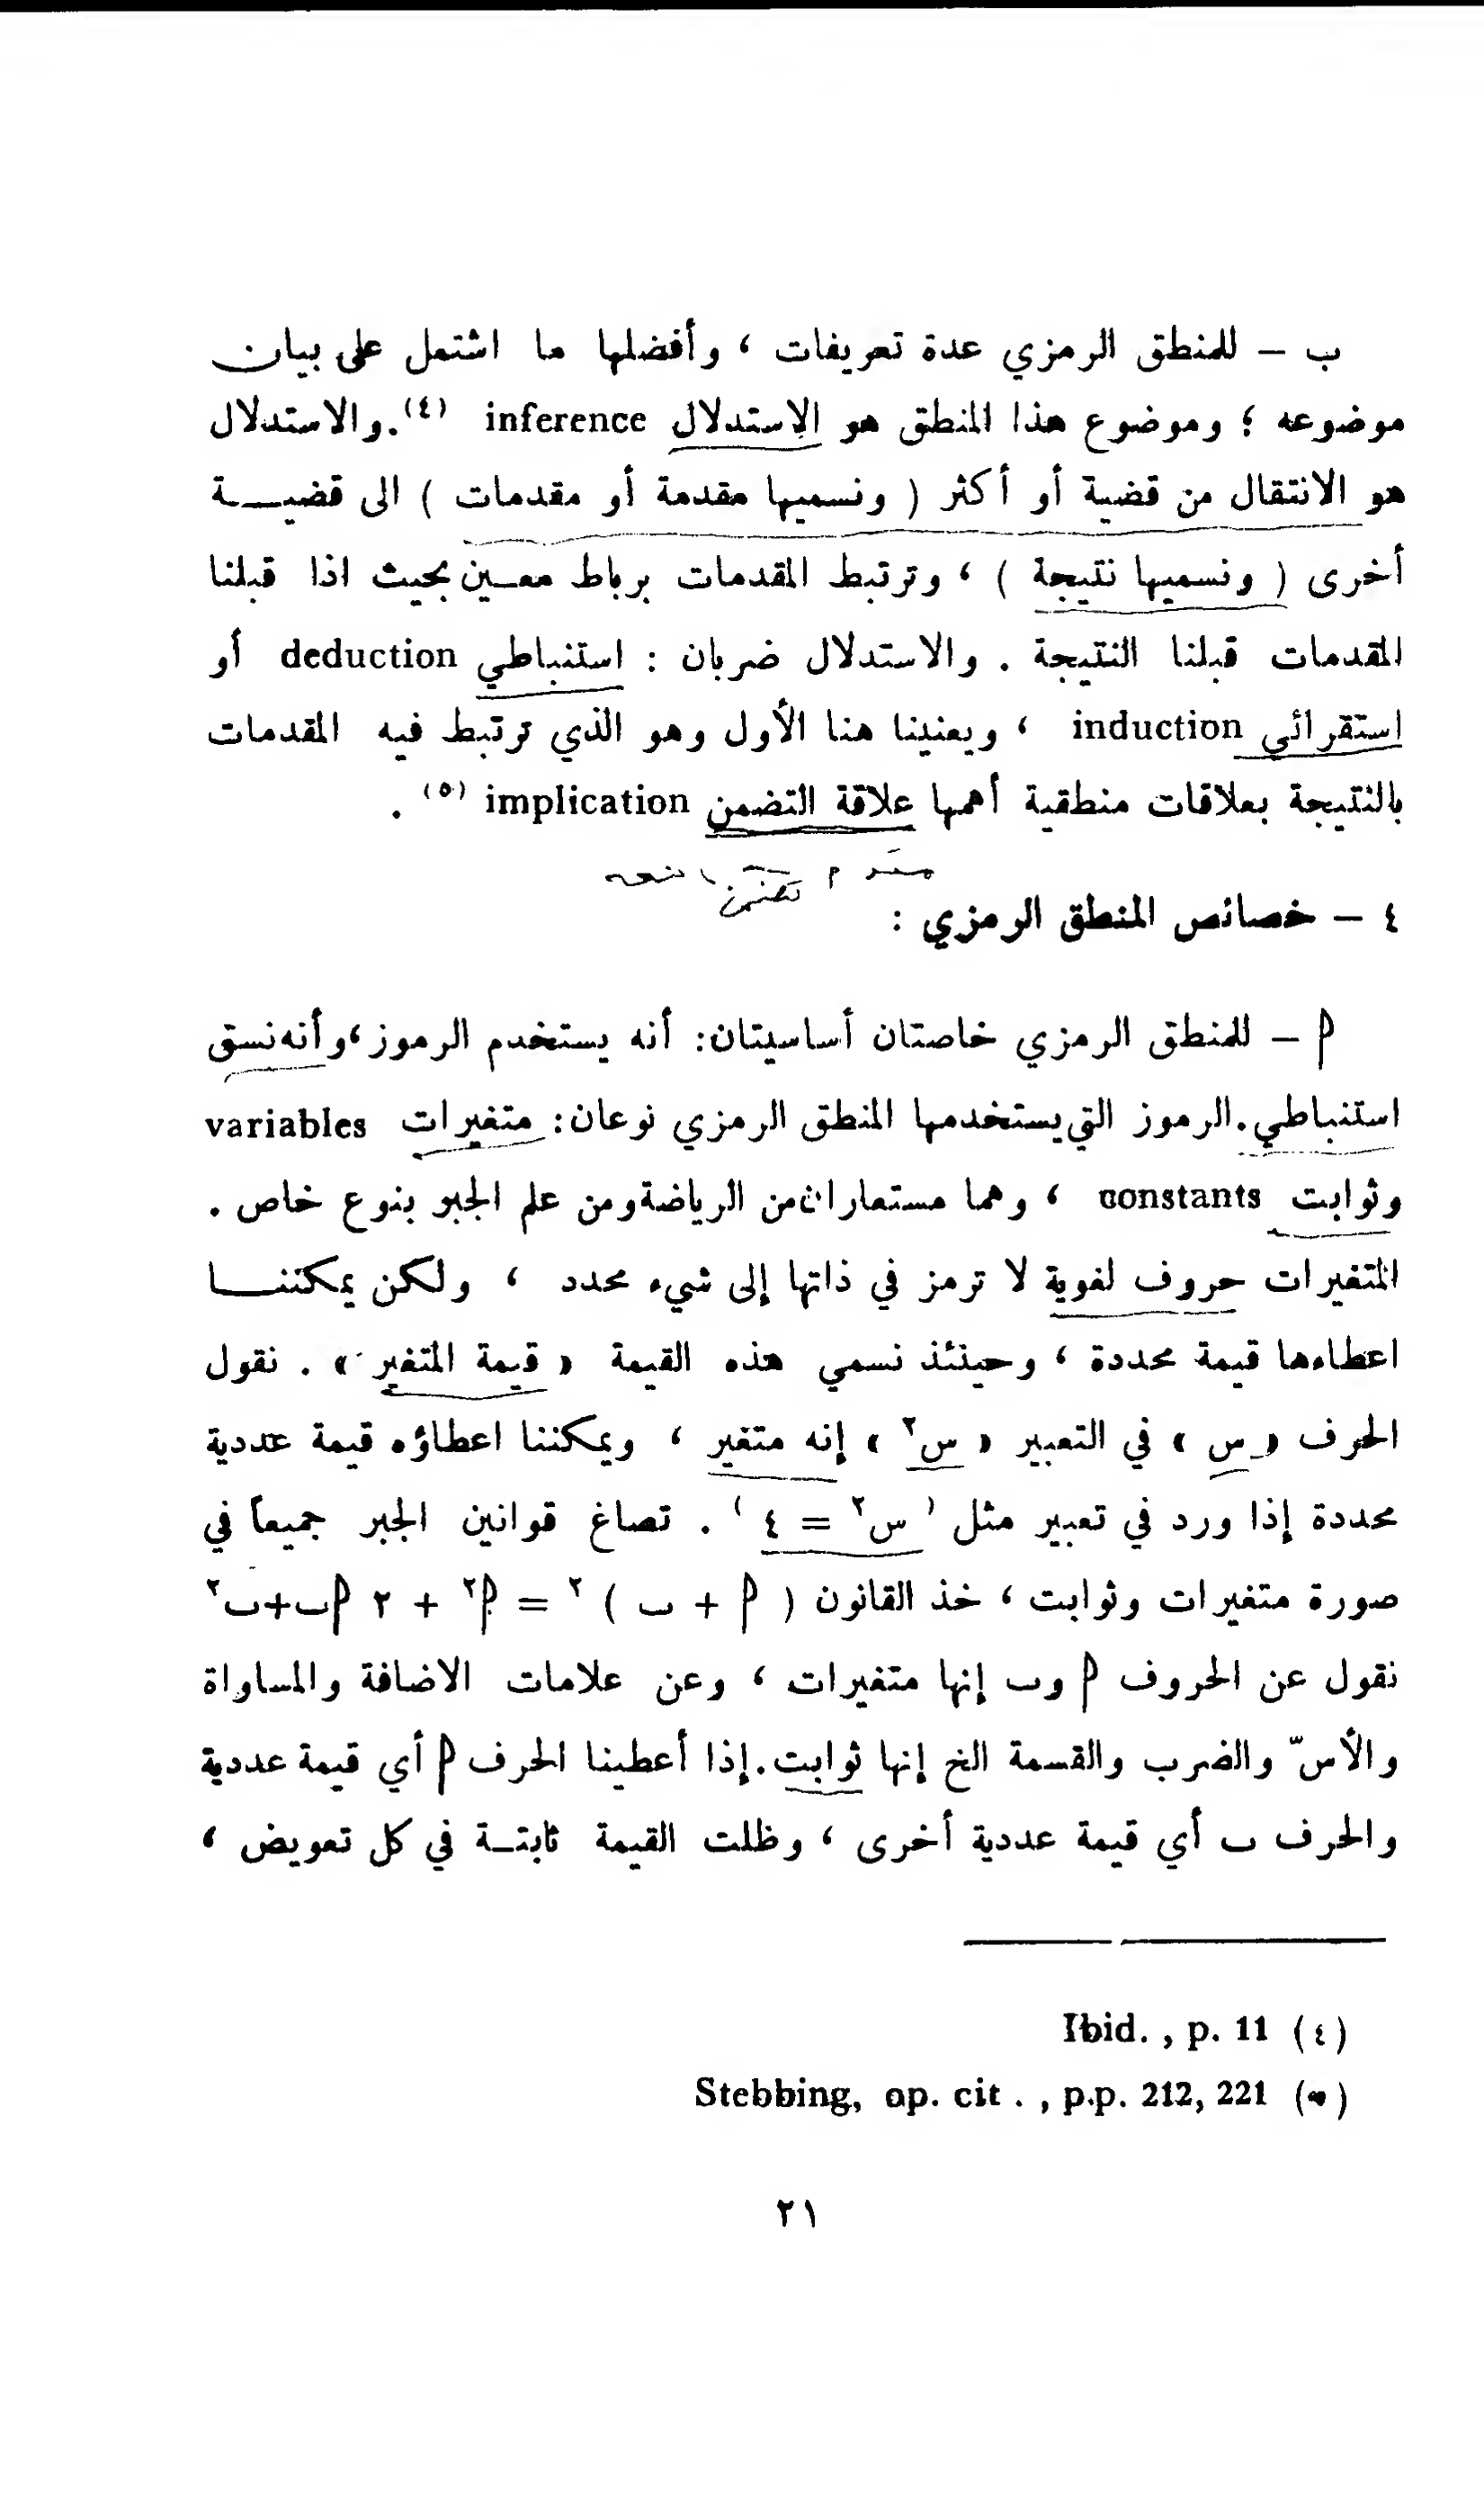 ب – للمنطق الرمزي عدة تعريفات ، وأفضلها ما اشتمل على بيان
موضوعه ؛ وموضوع هذا المنطق هو الاستدلال inference (٤).والاستدلال
هو الانتقال من قضية أو أكثر ( ونسميها مقدمة أو مقدمات ) الى قضيـــة
أخرى ( ونسميها نتيجة ) ، وترتبط المقدمات برباط معـين بحيث اذا قبلنا
المقدمات قبلنا النتيجة . والاستدلال ضربان : استنباطي deduction أو
استقرائي induction ، ويعنينا هنا الأول وهو الذي ترتبط فيه المقدمات
بالنتيجة بعلاقات منطقية أهمها علاقة التضمن implication (٥) .
٤ – خصائص المنطق الرمزي :
أ – للمنطق الرمزي خاصتان أساسيتان: أنه يستخدم الرموز،وأنه نسق
استنباطي.الرموز التي يستخدمها المنطق الرمزي نوعان: متغيرات variables
وثوابت constants ، وهما مستعاران من الرياضة ومن علم الجبر بنوع خاص .
المتغيرات حروف لغوية لا ترمز في ذاتها إلى شيء محدد ، ولكن يمكننـــا
اعطاءها قيمة محددة ، وحينئذ نسمي هذه القيمة « قيمة المتغير » . نقول
الحرف « س » في التعبير « س٢ » إنه متغير ، ويمكننا اعطاؤه قيمة عددية
محددة إذا ورد في تعبير مثل ' س٢ = ٤ ' . تصاغ قوانين الجبر جميعاً في
صورة متغيرات وثوابت ، خذ القانون ( أ + ب ) ٢ = أ٢ + ٢ أب+ب٢
نقول عن الحروف أ وب إنها متغيرات ، وعن علامات الاضافة والمساواة
والأسّ والضرب والقسمة الخ إنها ثوابت.إذا أعطينا الحرف أ أي قيمة عددية
والحرف ب أي قيمة عددية أخرى ، وظلت القيمة ثابتـة في كل تعويض ،
(٤) Ibid. , p. 11
(٥) Stebbing, op. cit . , p.p. 212, 221
٢١